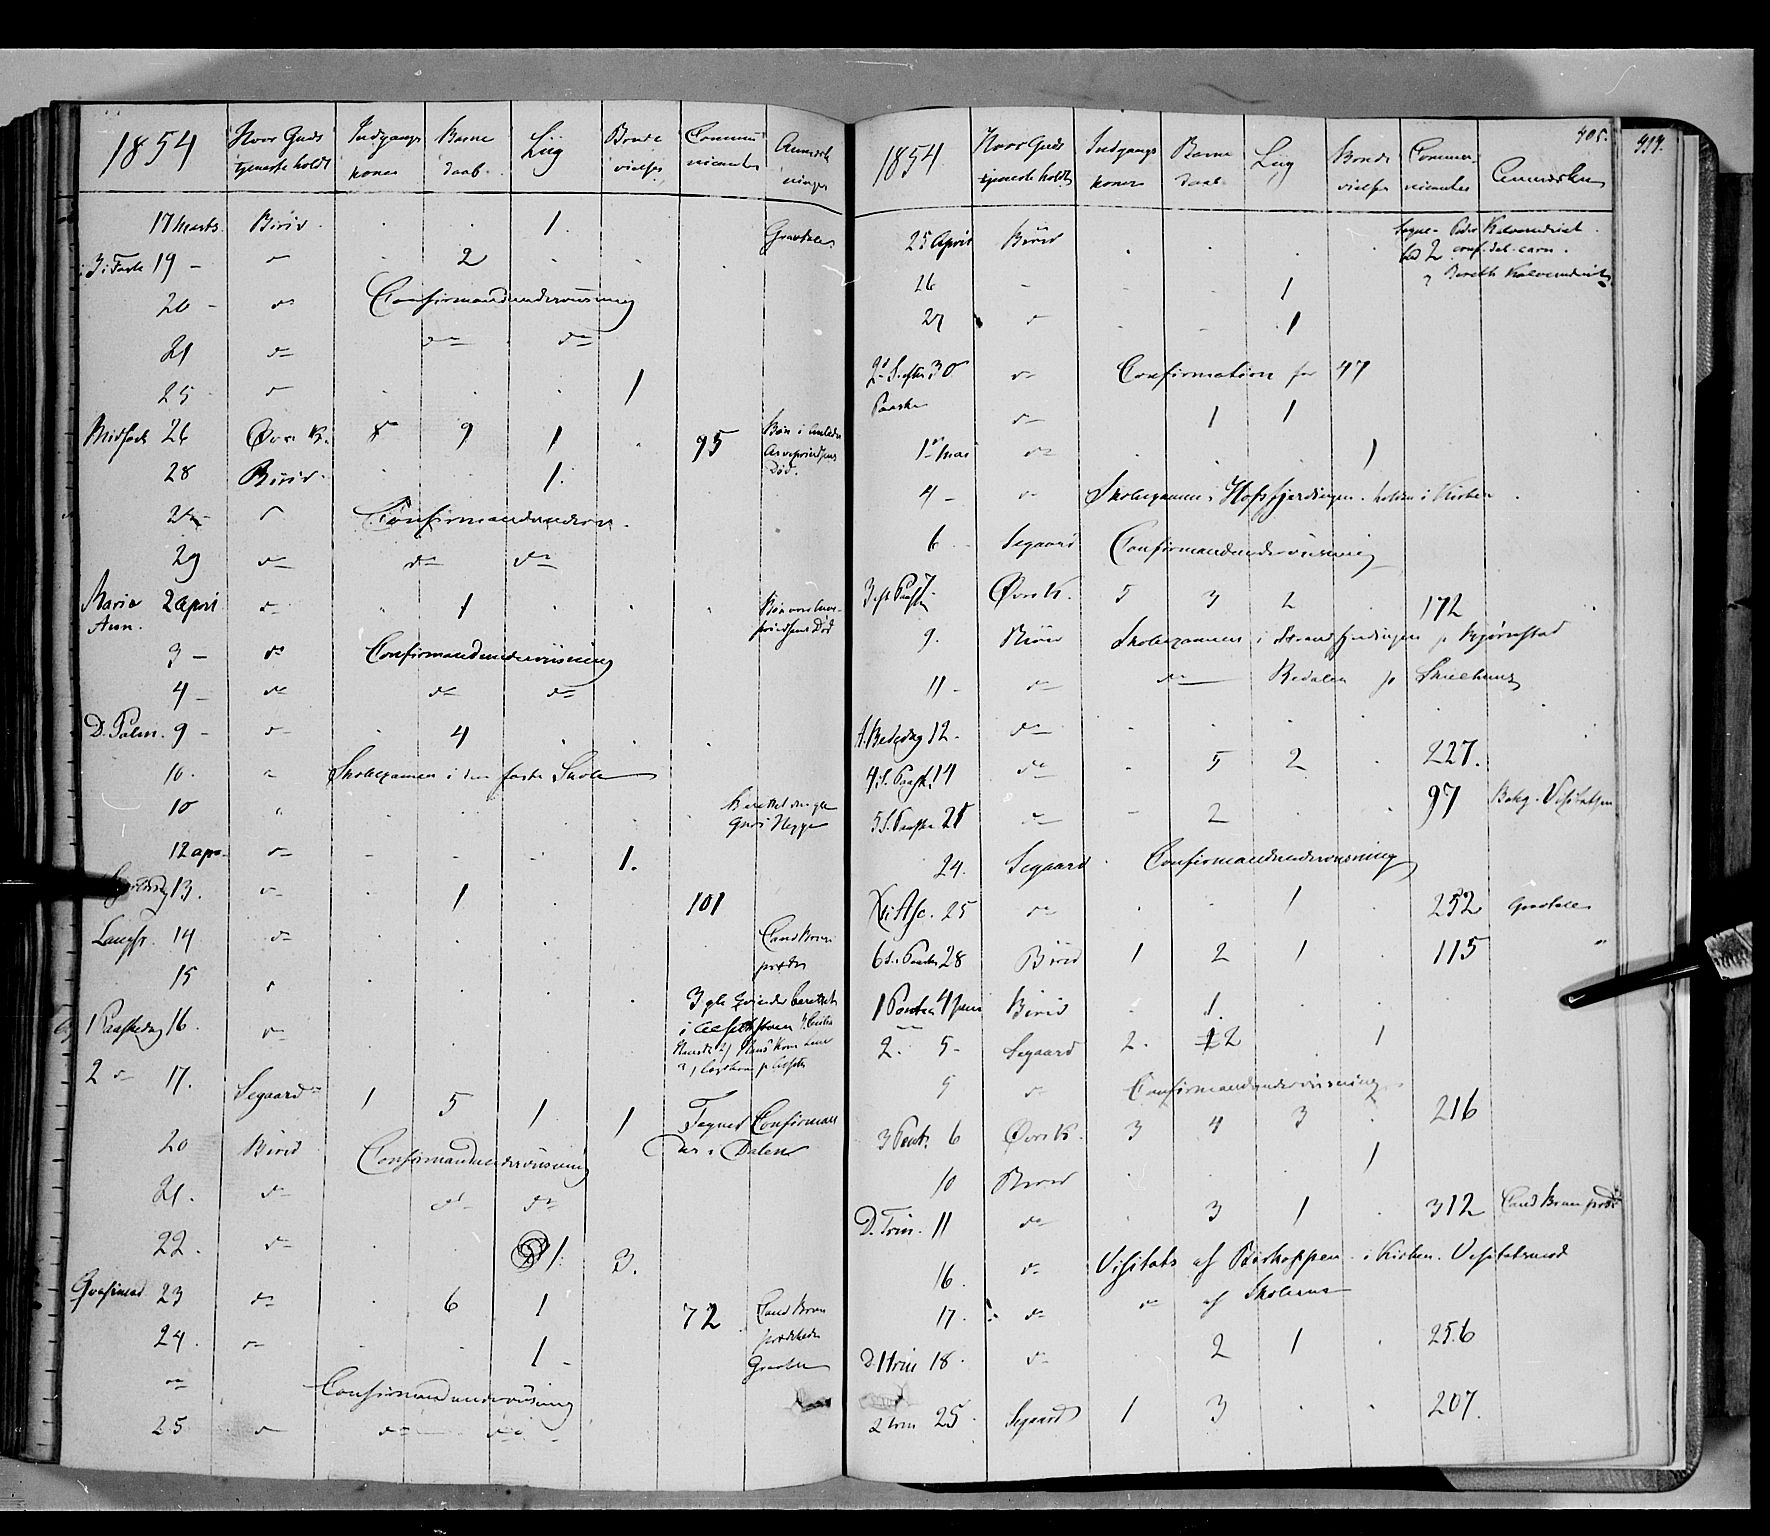 1854 Hvor Guds tjeneste holdt Indgangs koner Barne daab Liig Brude vielser Communicanter Anmærkninger
17 Marts Biriid . . 1. Gravtale
3 i Faste 19 - d . 2
20 - do Confirmandunderviisning
21 do do do
25 - d . . . 1
Midfaste 26 Øvre K. 8 9 1 . 95 Bøn i Anledn Arveprindsens Død.
28 Biriid . . 1.
d Confirmandunderv.
29 do do do
Mariæ Ann. 2 April do . 1 . . . Arveprindsens Død
3 - do Confirmandunderviisning
4 - do do do
D. Palm. 9 - do . 4 . . .
10. " Skoleexamen i den faste Skole
10 " . . . .
12 apr. do . . . 1.
13. do . 1 . . 101
Langfr. 14 do . . . . Cand Brun
15 d . . . .
1 Paaskedag 16. do . . . 3 gle Qvinder berettet
2 do 17. Segaard 1 5 1 1 Tegned Confirman der i Dalen
20 Biriid Confirmandunderviisning
21. do do do
22. do . . 1. 3.
Qvasimod 23 do . 6 1 72 Cand Brun
24. do . . 1 - Gravtale
do Confirmandunderviisning
25 do do do
405. 499.
1854. Hvor Guds tjeneste holdt Indgangs koner Barne daab Liig Brude vielser Communicanter Anmærkn
25 April Biriid . . . .
26 - . . 1
27 do . . 1
2d S. efter 30 do Confirmation for 47
Paaske do 1 1
1ste Mai do . . . 1
4 - do Skoleexamen i Hofsfjerdingen holden i Kirken
6 - Segaard Confirmandunderviisning
7 Øvre K. 5 3 2 . 172
9. Biriid Skoleexamen i Strandfjerdingen p Bjørnstad
11 - do do Redalen p
1. Bededag 12. do . . . .
4 S. Paask. 14 do . 5 2 . 227.
5 S. Paaske 21 do - 2 . . 97
24. Segaard . Confirmandunderviisning
Xsti Asc. 25 do . . 1 . 252 Gravtale
6 S. Paaske 28 Biriid 1 2 1 . 115 "
1 Pintse 4 Juni Biriid . 1. . .
2. 5 - Segaard 2. 2 . 1
5 do Confirmandunderviisning
3 Pints. 6 Øvre K. 3 4 3 . 216
10 Biriid . . . 1
D. Trin. 11 do . 3 1 . 312 Cand Brun præd
16. do Visitats af Biskoppen i Kirken. Visitatsmød
17. do do af Skolerne
D. 1 Trin 18. do . 2 1 . 256
2 Trin 25 Segaard 1 3 . . 207.